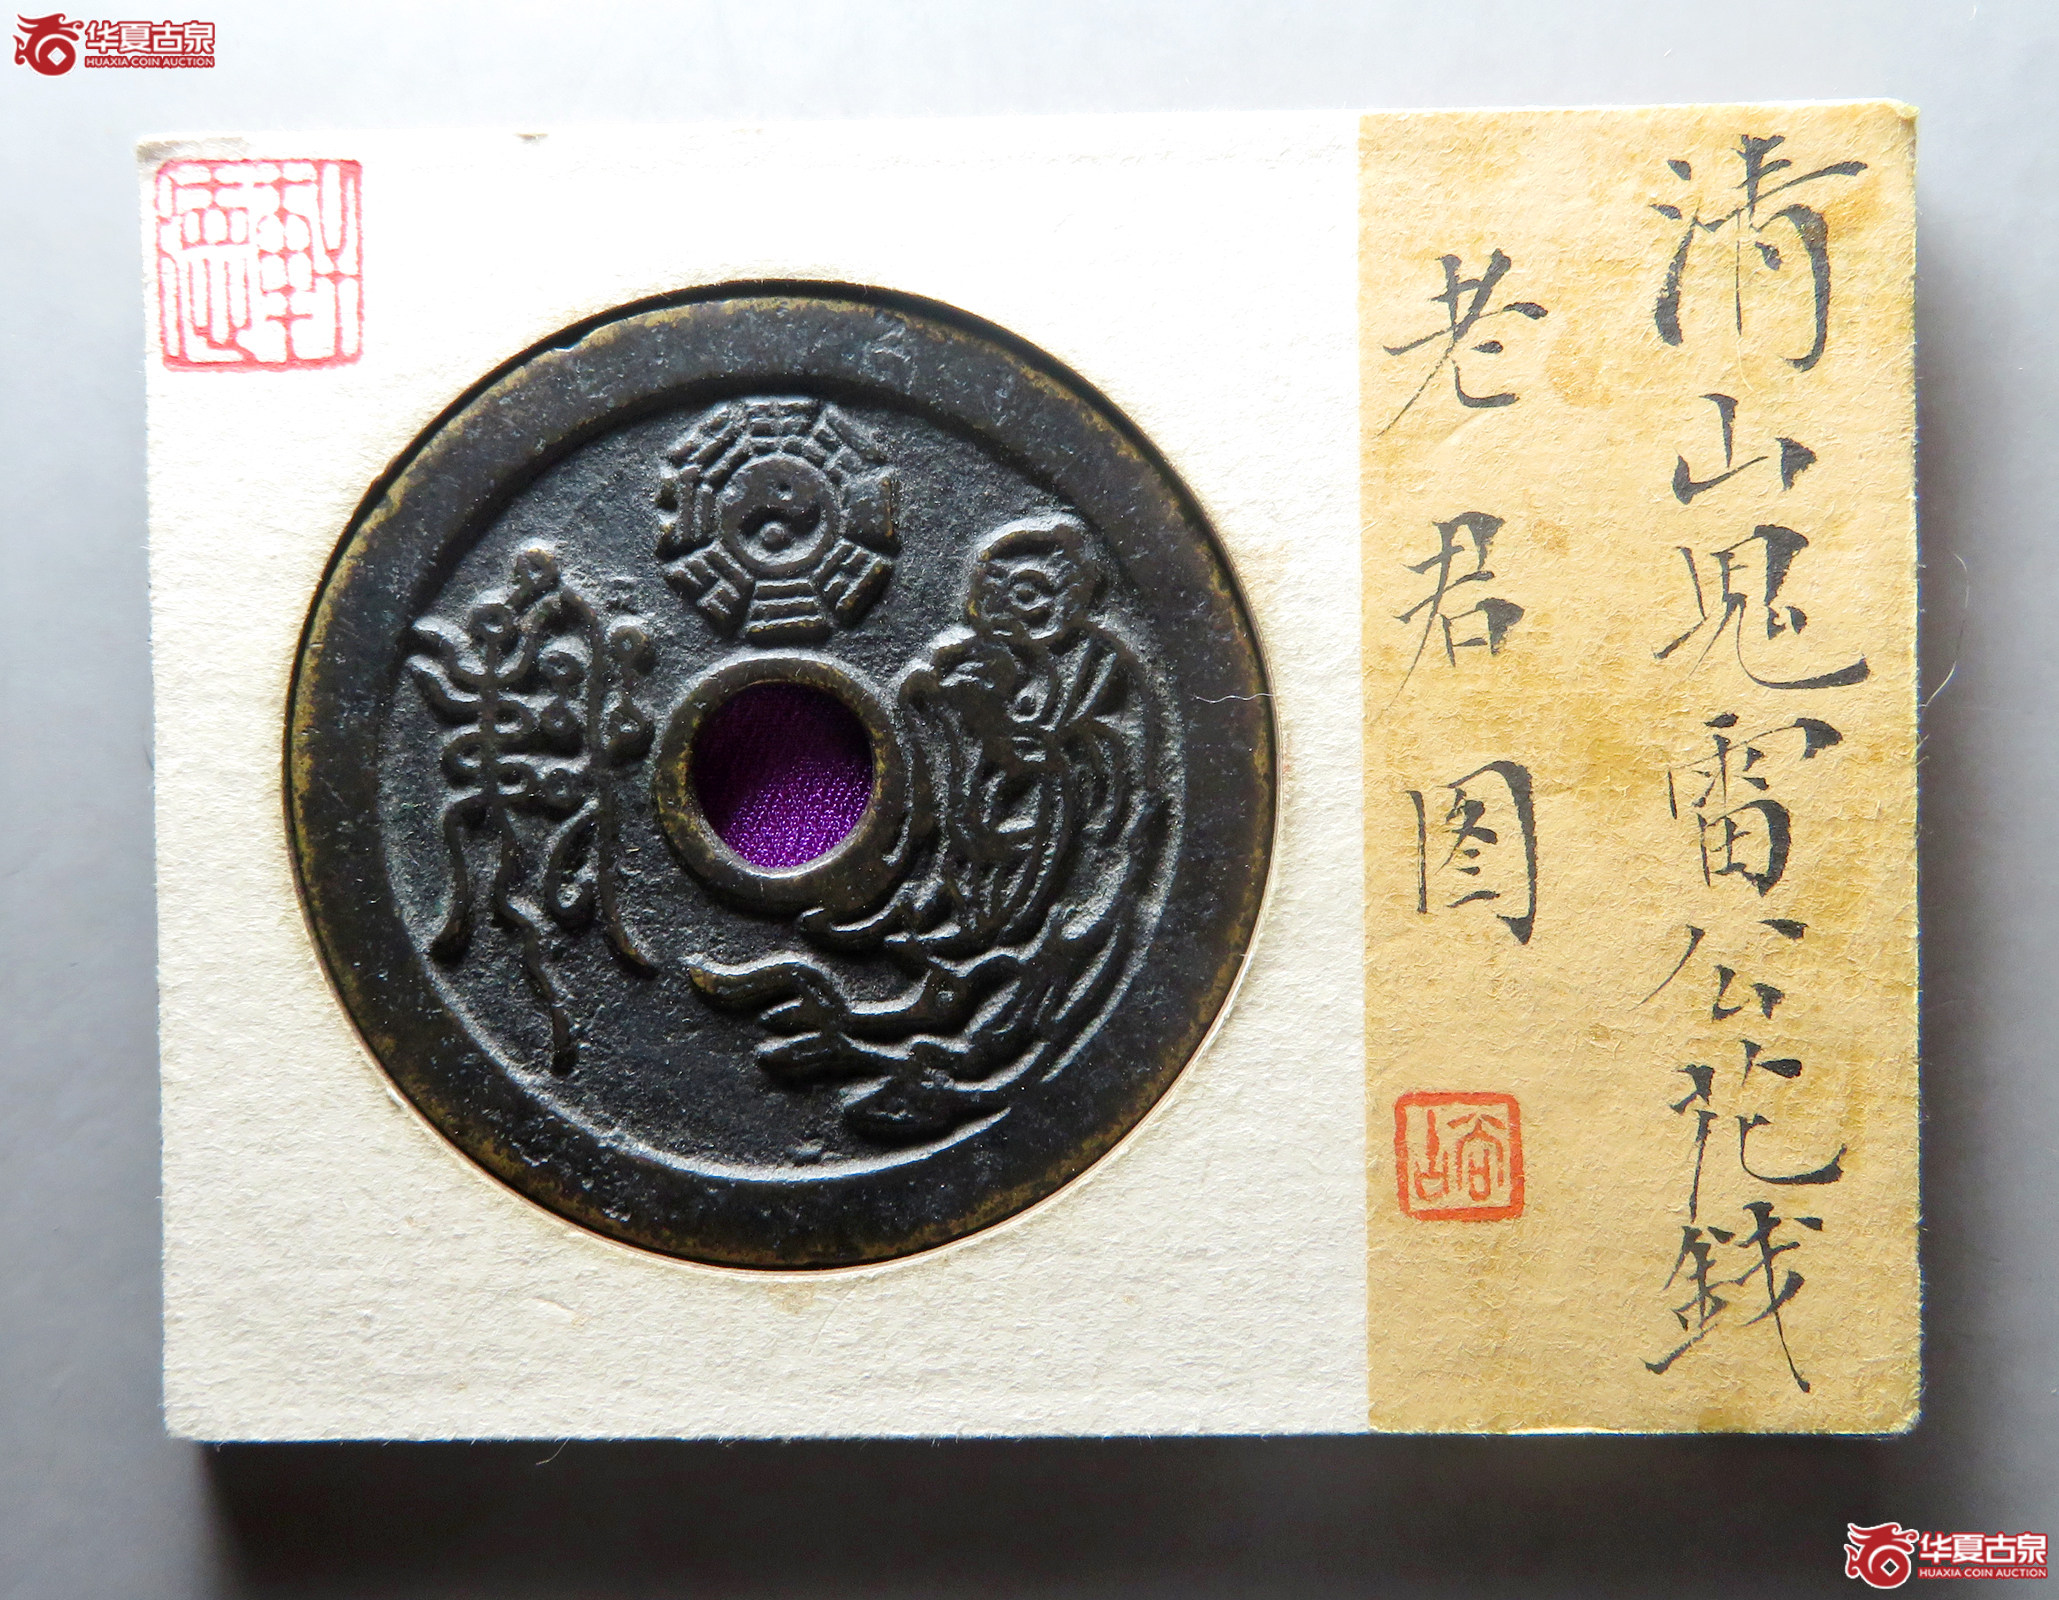 华夏古泉
HUAXIA COIN AUCTION
清山鬼雷公花錢
老君图
华夏古泉
HUAXIA COIN AUCTION